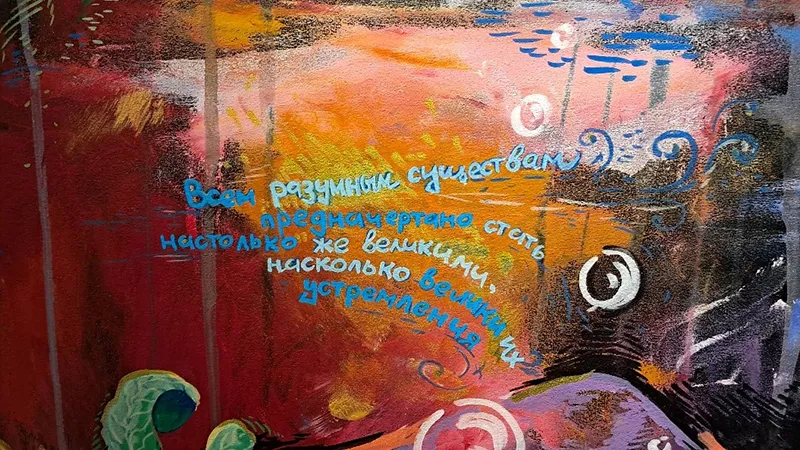 Всем разумным существам
предначертано стать
настолько же великими,
насколько велики их
устремления